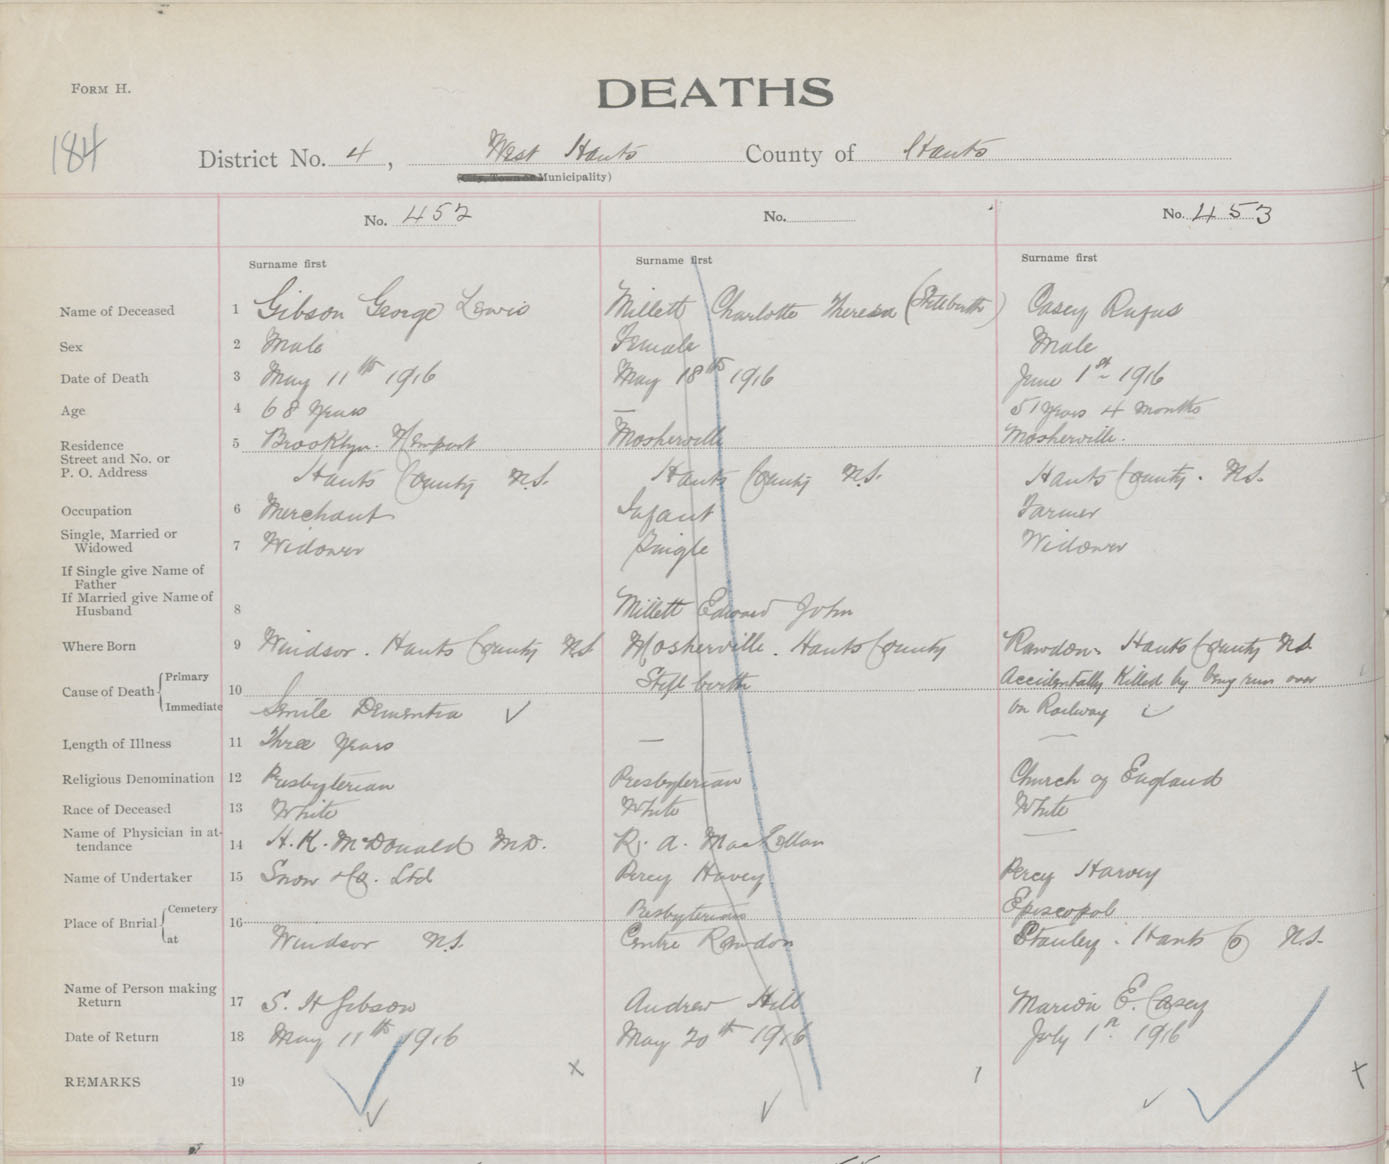 FORM H.
DEATHS
184
District No. 4, West Hants County of Hants
(City, Town or Municipality)
No. 452 No. No. 453
Surname first Surname first Surname first
Name of Deceased 1 Gibson George Lewis Millett Charlotte Theresa (Stillbirth) Casey Rufus
Sex 2 Male Female Male
Date of Death 3 May 11th 1916 May 18th 1916 June 1st 1916
Age 4 68 Years — 51 Years 4 Months
Residence Street and No. or P. O. Address 5 Brooklyn. Newport Mosherville Mosherville.
Hants County N.S. Hants County N.S. Hants County. N.S.
Occupation 6 Merchant Infant Farmer
Single, Married or Widowed 7 Widower Single Widower
If Single give Name of Father
If Married give Name of Husband 8 Millett Edward John
Where Born 9 Windsor. Hants County N.S Mosherville. Hants County Rawdon. Hants County N.S
Cause of Death { Primary 10 Still birth Accidentally Killed by being run over
Immediate Senile Dementia ✓ on Railway ✓
Length of Illness 11 Three Years — —
Religious Denomination 12 Presbyterian Presbyterian Church of England
Race of Deceased 13 White White White
Name of Physician in attendance 14 H. K. McDonald M.D. R. A. MacKellan —
Name of Undertaker 15 Snow & Co. Ltd Percy Harvey Percy Harvey
Place of Burial { Cemetery 16 Presbyterian Episcopal
at Windsor N.S. Centre Rawdon Stanley. Hants Co N.S.
Name of Person making Return 17 S. H Gibson Andrew Hill Marion E. Casey
Date of Return 18 May 11th 1916 May 20th 1916 July 1st 1916
REMARKS 19